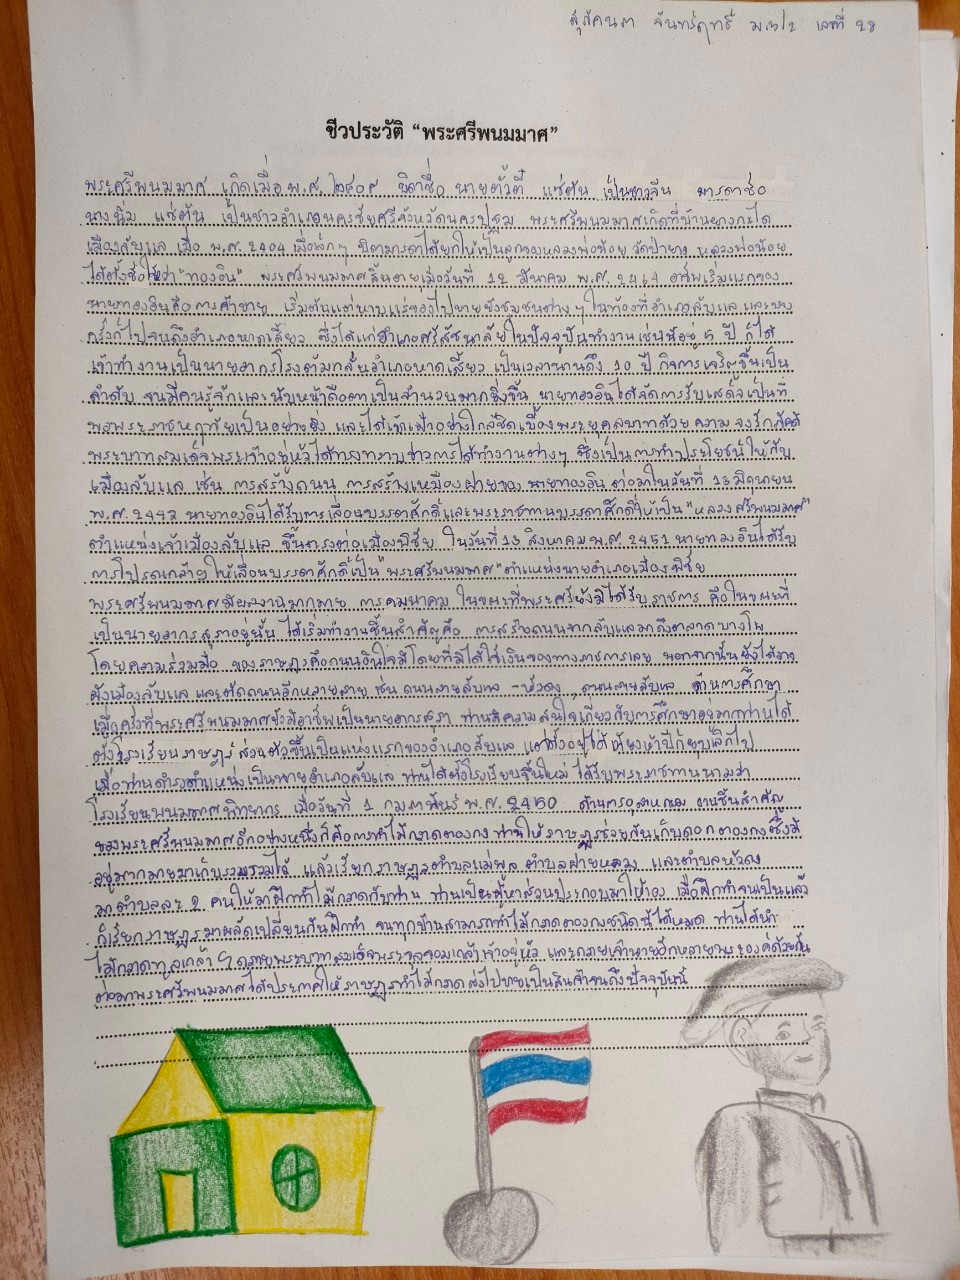 สุภัคนภา จันทร์ฤทธิ์ ม.๓/2 เลขที่ 28
ชีวประวัติ “พระศรีพนมมาศ”
พระศรีพนมมาศ เกิดเมื่อ พ.ศ. ๒๔๐๙ บิดาชื่อ นายตั้วตี๋ แซ่ตัน เป็นชาวจีน มารดาชื่อ
นางนิ่ม แซ่ตัน เป็นชาวอำเภอนครชัยศรีจังหวัดนครปฐม พระศรีพนมมาศเกิดที่บ้านยางกะได
เมืองลับแล เมื่อ พ.ศ. 2404 เมื่อเล็กๆ บิดามารดาได้ยกให้เป็นลูกของหลวงพ่อน้อย วัดป่ายาง หลวงพ่อน้อย
ได้ตั้งชื่อให้ว่า "ทองอิน" พระศรีพนมมาศสิ้นอายุเมื่อวันที่ 12 มีนาคม พ.ศ. 2464 อาชีพเริ่มแรกของ
นายทองอินคือการค้าขาย เริ่มต้นแต่หาบแร่ของไปขายยังชุมชนต่างๆ ในท้องที่อำเภอลับแล และบาง
ครั้งก็ไปจนถึงอำเภอหาดเสี้ยว ซึ่งได้แก่อำเภอศรีสัชนาลัยในปัจจุบันทำงานเช่นนี้อยู่ 5 ปี ก็ได้
เข้าทำงานเป็นนายอากรโรงต้มกลั่นอำเภอหาดเสี้ยว เป็นเวลานานถึง 10 ปี กิจการเจริญขึ้นเป็น
ลำดับ จนมีคนรู้จักและนับหน้าถือตาเป็นจำนวนมากยิ่งขึ้น นายทองอินได้จัดการรับเสด็จเป็นที่
พอพระราชหฤทัยเป็นอย่างยิ่ง และได้เข้าเฝ้าอย่างใกล้ชิดเบื้องพระยุคลบาทด้วยความจงรักภักดี
พระบาทสมเด็จพระเจ้าอยู่หัวได้ทรงทราบข่าวการได้ทำงานต่างๆ ซึ่งเป็นการทำประโยชน์ให้กับ
เมืองลับแล เช่น การสร้างถนน การสร้างเหมืองฝายของ นายทองอิน ต่อมาในวันที่ 13 มิถุนายน
พ.ศ. 2443 นายทองอินได้รับการเลื่อนบรรดาศักดิ์และพระราชทานบรรดาศักดิ์ให้เป็น "หลวงศรีพนมมาศ"
ตำแหน่งเจ้าเมืองลับแล ขึ้นตรงต่อเมืองพิชัย ในวันที่ 13 สิงหาคม พ.ศ. 2451 นายทองอินได้รับ
การโปรดเกล้าฯ ให้เลื่อนบรรดาศักดิ์เป็น "พระศรีพนมมาศ" ตำแหน่งนายอำเภอเมืองพิชัย
พระศรีพนมมาศมีผลงานมากมาย การคมนาคม ในขณะที่พระศรียังมิได้รับราชการ คือในขณะที่
เป็นนายอากรสุราอยู่นั้น ได้เริ่มทำงานชิ้นสำคัญคือ การสร้างถนนจากลับแลมาถึงตลาดบางโพ
โดยความร่วมมือ ของราษฎรคือถนนอินใจมีโดยที่มิได้ใช้เงินของทางราชการเลย นอกจากนั้นยังได้วาง
ผังเมืองลับแล และตัดถนนอีกหลายสาย เช่น ถนนสายลับแล - หัวดง , ถนนสายลับแล ด้านการศึกษา
เมื่อครั้งที่พระศรีพนมมาศยังมีอาชีพเป็นนายอากรสุรา ท่านมีความสนใจเกี่ยวกับการศึกษาอยู่มากท่านได้
ตั้งโรงเรียนราษฎร์ส่วนตัวขึ้นเป็นแห่งแรกของอำเภอลับแล แต่ตั้งอยู่ได้เพียงห้าปีก็ยุบเลิกไป
เมื่อท่านดำรงตำแหน่งเป็นนายอำเภอลับแล ท่านได้ตั้งโรงเรียนขึ้นใหม่ ได้รับพระราชทานนามว่า
โรงเรียนพนมมาศพิทยากร เมื่อวันที่ 1 กุมภาพันธ์ พ.ศ. 2450 ด้านการอุตสาหกรรม งานชิ้นสำคัญ
ของพระศรีพนมมาศอีกอย่างหนึ่งก็คือการทำไม้กวาดตองกง ท่านให้ราษฎรช่วยกันเก็บดอกตองกงซึ่งมี
อยู่มากมายมาเก็บรวบรวมไว้ แล้วเรียกราษฎรตำบลแม่พูล ตำบลฝายหลวง และตำบลหัวดง
มาตำบลละ 2 คนให้มาฝึกทำไม้กวาดกับท่าน ท่านเป็นผู้หาส่วนประกอบมาให้เอง เมื่อฝึกทำจนเป็นแล้ว
ก็เรียกราษฎรมาผลัดเปลี่ยนกันฝึกทำ จนทุกบ้านสามารถทำไม้กวาดตองกงชนิดนี้ได้หมด ท่านได้นำ
ไม้กวาดทูลเกล้าฯ ถวายพระบาทสมเด็จพระจุลจอมเกล้าเจ้าอยู่หัว และถวายเจ้านายอีกหลายพระองค์ด้วยกัน
ต่อมาพระศรีพนมมาศได้ประกาศให้ราษฎรทำไม้กวาดส่งไปขายเป็นสินค้าจนถึงปัจจุบันนี้